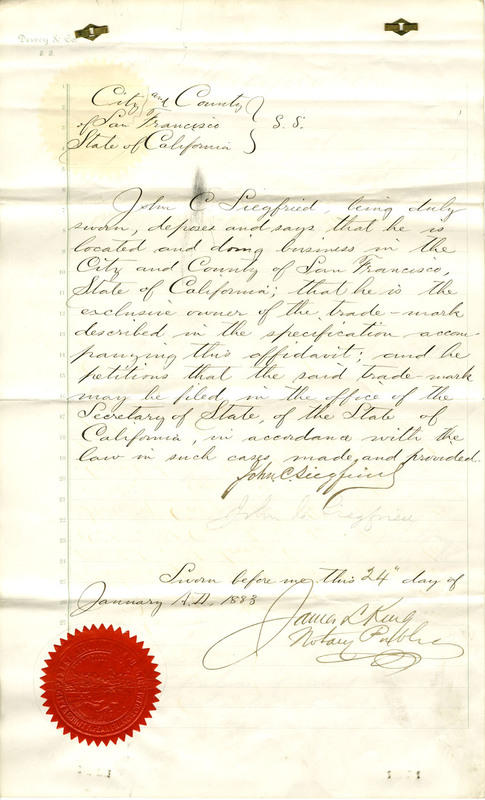 Dewey & Co.
City and County
of San Francisco } S. S.
State of California
John C Siegfried, being duly
sworn, deposes and says that he is
located and doing business in the
City and County of San Francisco,
State of California; that he is the
exclusive owner of the trade-mark
described in the specification accom-
panying this affidavit; and he
petitions that the said trade-mark
may be filed in the office of the
Secretary of State, of the State of
California, in accordance with the
law in such cases made and provided.
John C. Siegfried
Sworn before me this 24" day of
January A.D. 1883
James L King
Notary Public